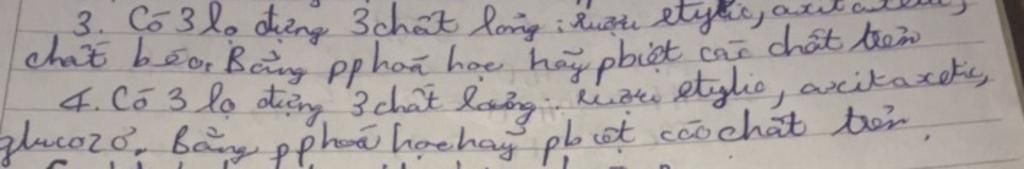 3. Có 3 lọ đựng 3 chất lỏng: Rượu etylic, axit axetic,
chất béo. Bằng pp hoá học hãy pbiệt các chất trên
4. Có 3 lọ đựng 3 chất lỏng: Rượu etylic, axit axetic,
glucozơ. Bằng pp hoá học hãy pbiệt các chất trên.